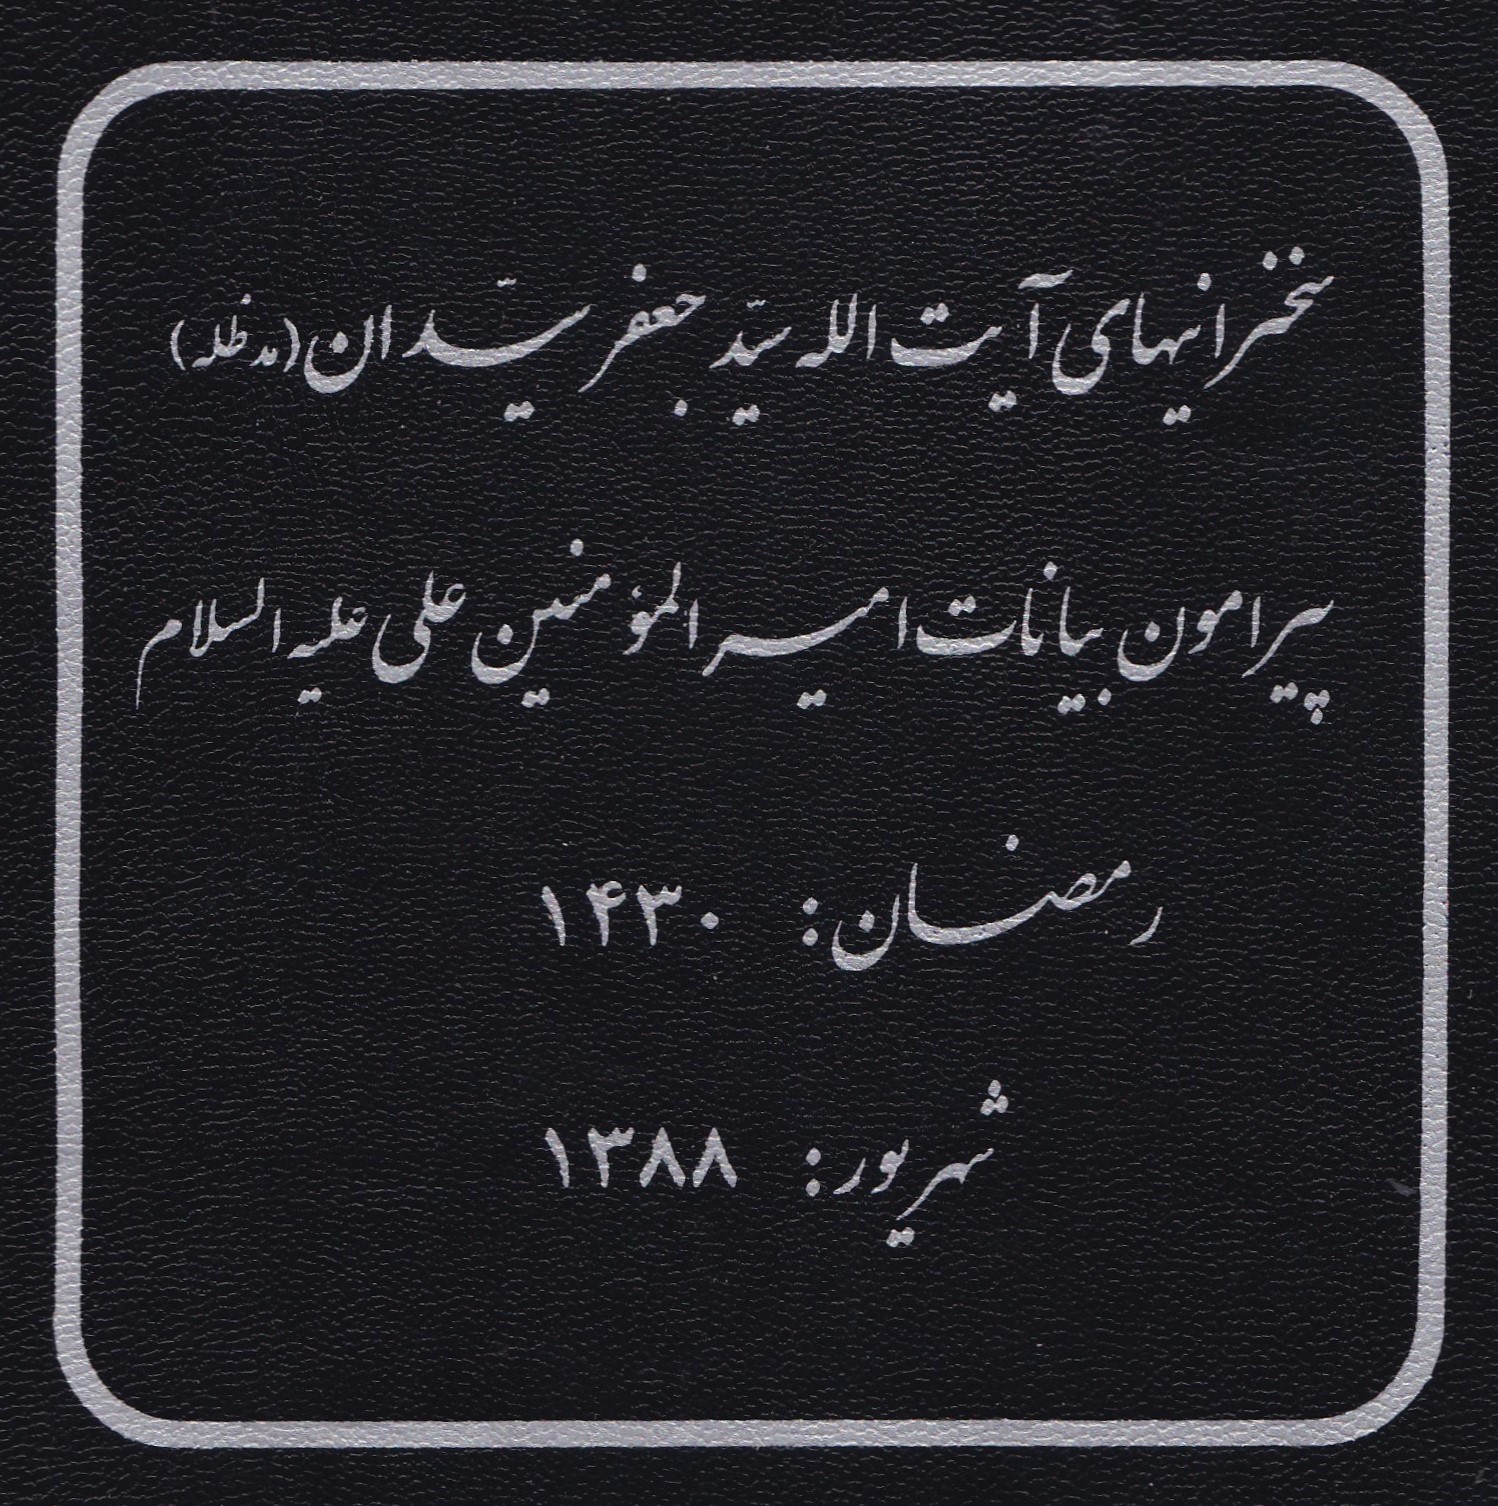 سخنرانیهای آیت الله سیّد جعفر سیّدان (مدظله)
پیرامون بیانات امیرالمؤمنین علی علیه السلام
رمضان: ۱۴۳۰
شهریور: ۱۳۸۸